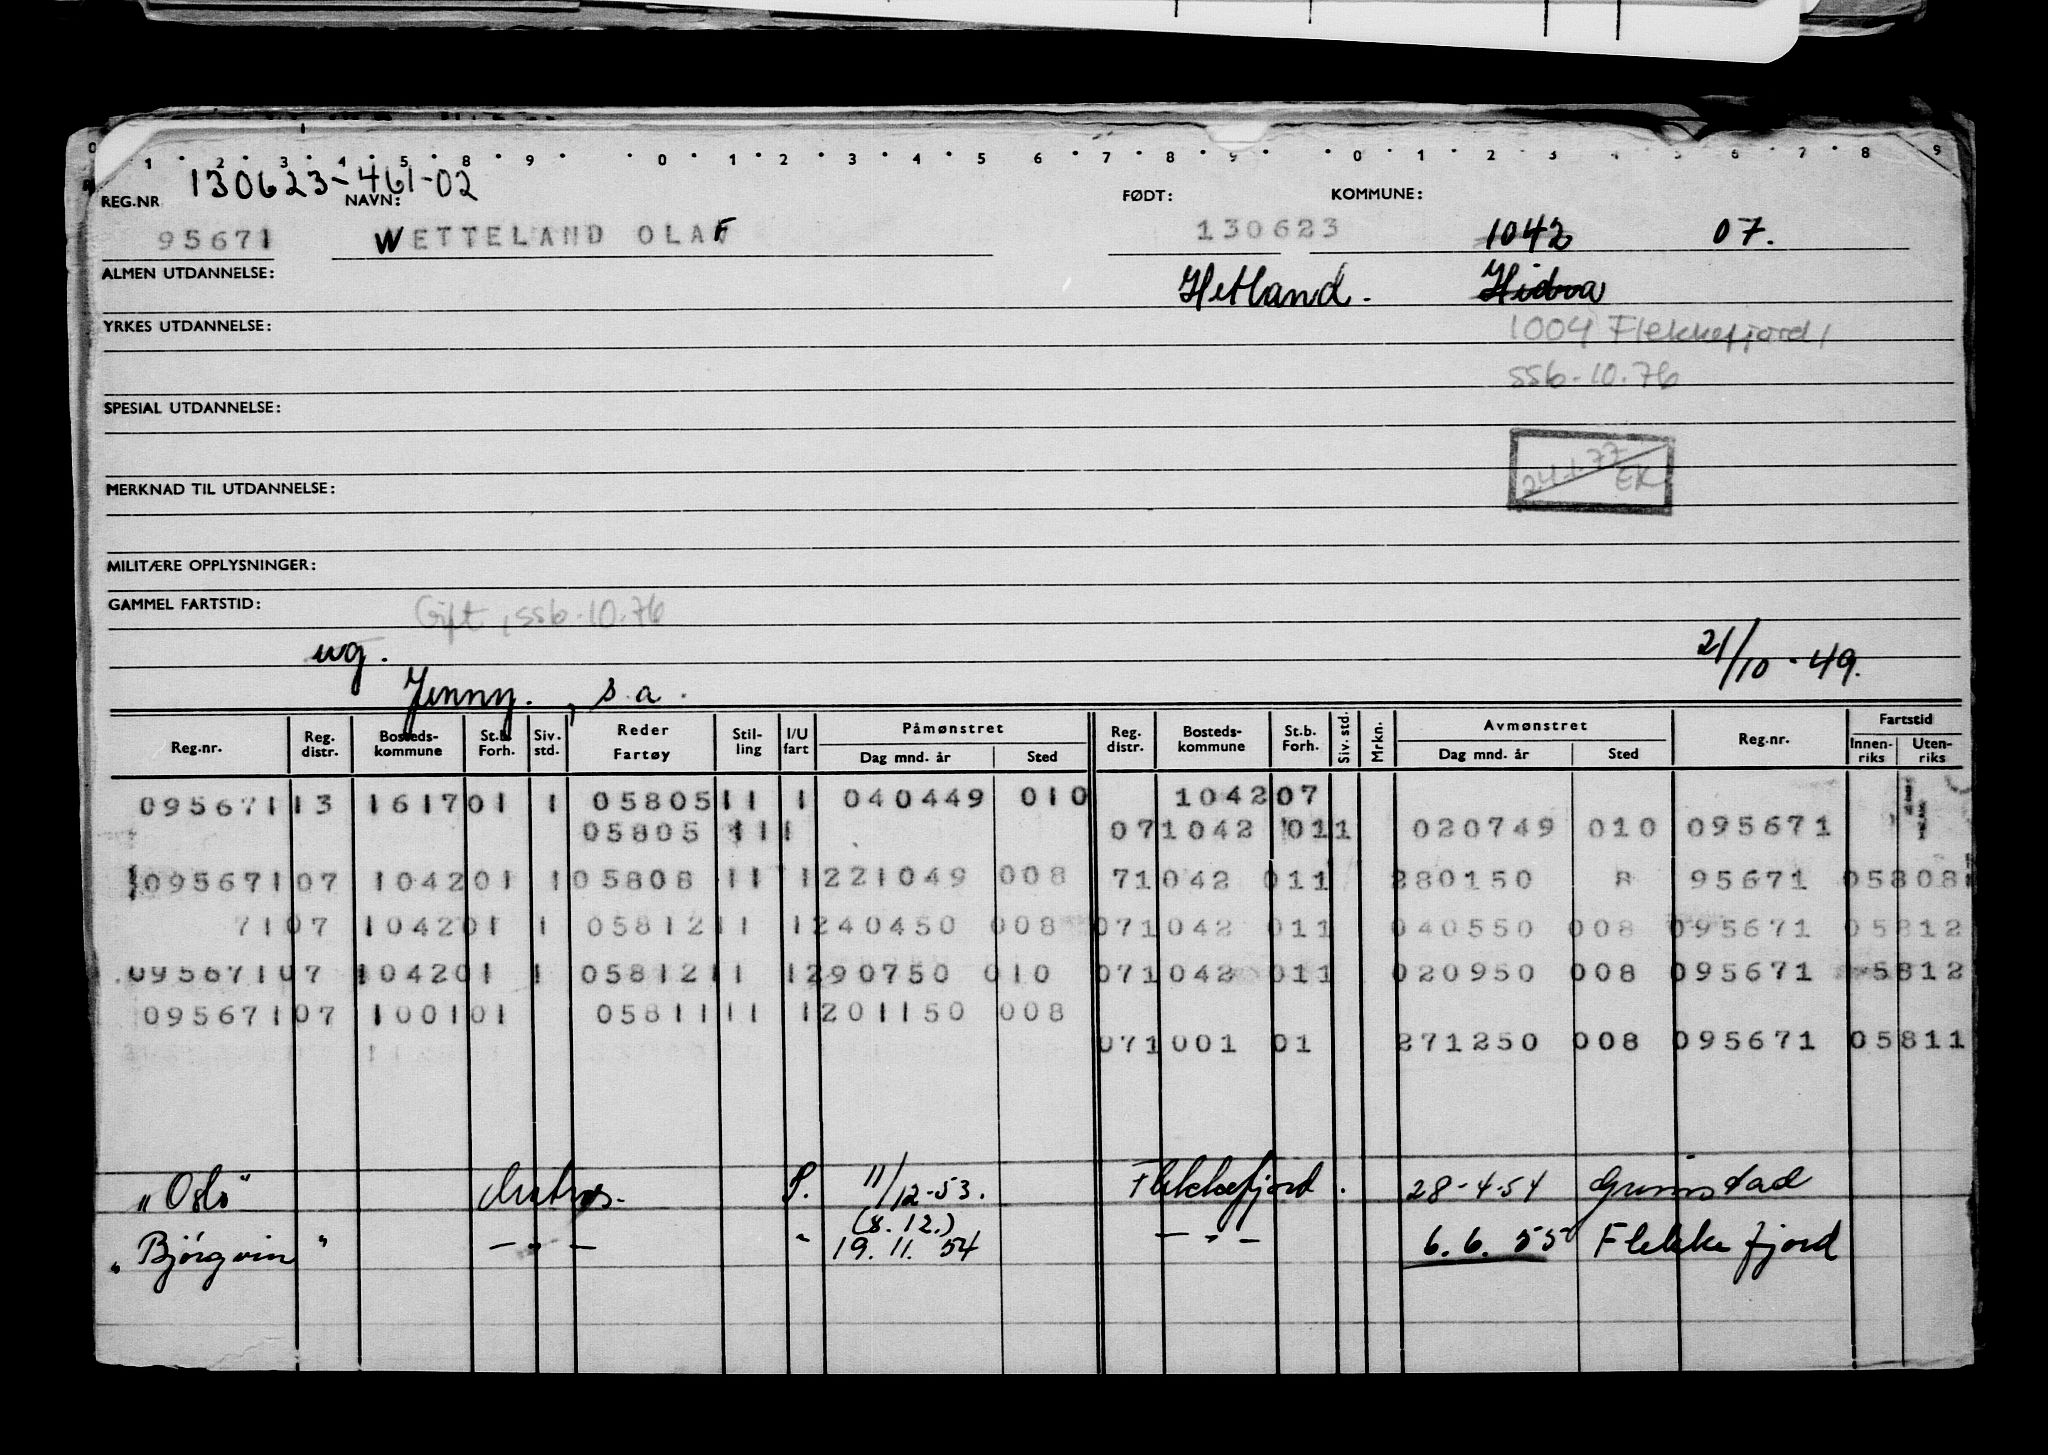 1 2 3 4 5 8 9 0 1 2 3 4 5 6 7 8 9 0 1 2 3 4 5 6 7 8 9
REG.NR 130623-461-02 NAVN: FØDT: KOMMUNE:
95671 WETTELAND OLAF 130623 1042 07.
ALMEN UTDANNELSE: Hetland. Hidra
YRKES UTDANNELSE: 1004 Flekkefjord
ssb.10.76
SPESIAL UTDANNELSE:
24.1.77 EK
MERKNAD TIL UTDANNELSE:
MILITÆRE OPPLYSNINGER:
GAMMEL FARTSTID: Gift, ssb.10.76
ug. 21/10-49.
Jenny., s.a.
Reg.nr. Reg. distr. Bosteds-kommune St.b. Forh. Siv. std. Reder Fartøy Stil-ling I/U fart Påmønstret Dag mnd. år Sted Reg. distr. Bosteds-kommune St.b. Forh. Siv. std. Mrkn. Avmønstret Dag mnd. år Sted Reg.nr. Fartstid Innen-riks Uten-riks
095671 13 1617 01 1 05805 11 1 040449 010 1042 07
05805 11 1 07 1042 01 1 020749 010 095671
095671 07 1042 01 1 05808 11 1 221049 008 7 1042 01 1 280150 8 95671 05808
71 07 1042 01 1 05812 11 1 240450 008 07 1042 01 1 040550 008 095671 05812
095671 07 1042 01 1 05812 11 1 290750 010 07 1042 01 1 020950 008 095671 5812
095671 07 1001 01 05811 11 1 201150 008
07 1001 01 271250 008 095671 05811
"Oslo" Matros. 11/12-53. Flekkefjord. 28-4-54 Grimstad
(8.12.)
"Bjørgvin" — " — " 19.11.54 — " — 6.6.55 Flekkefjord